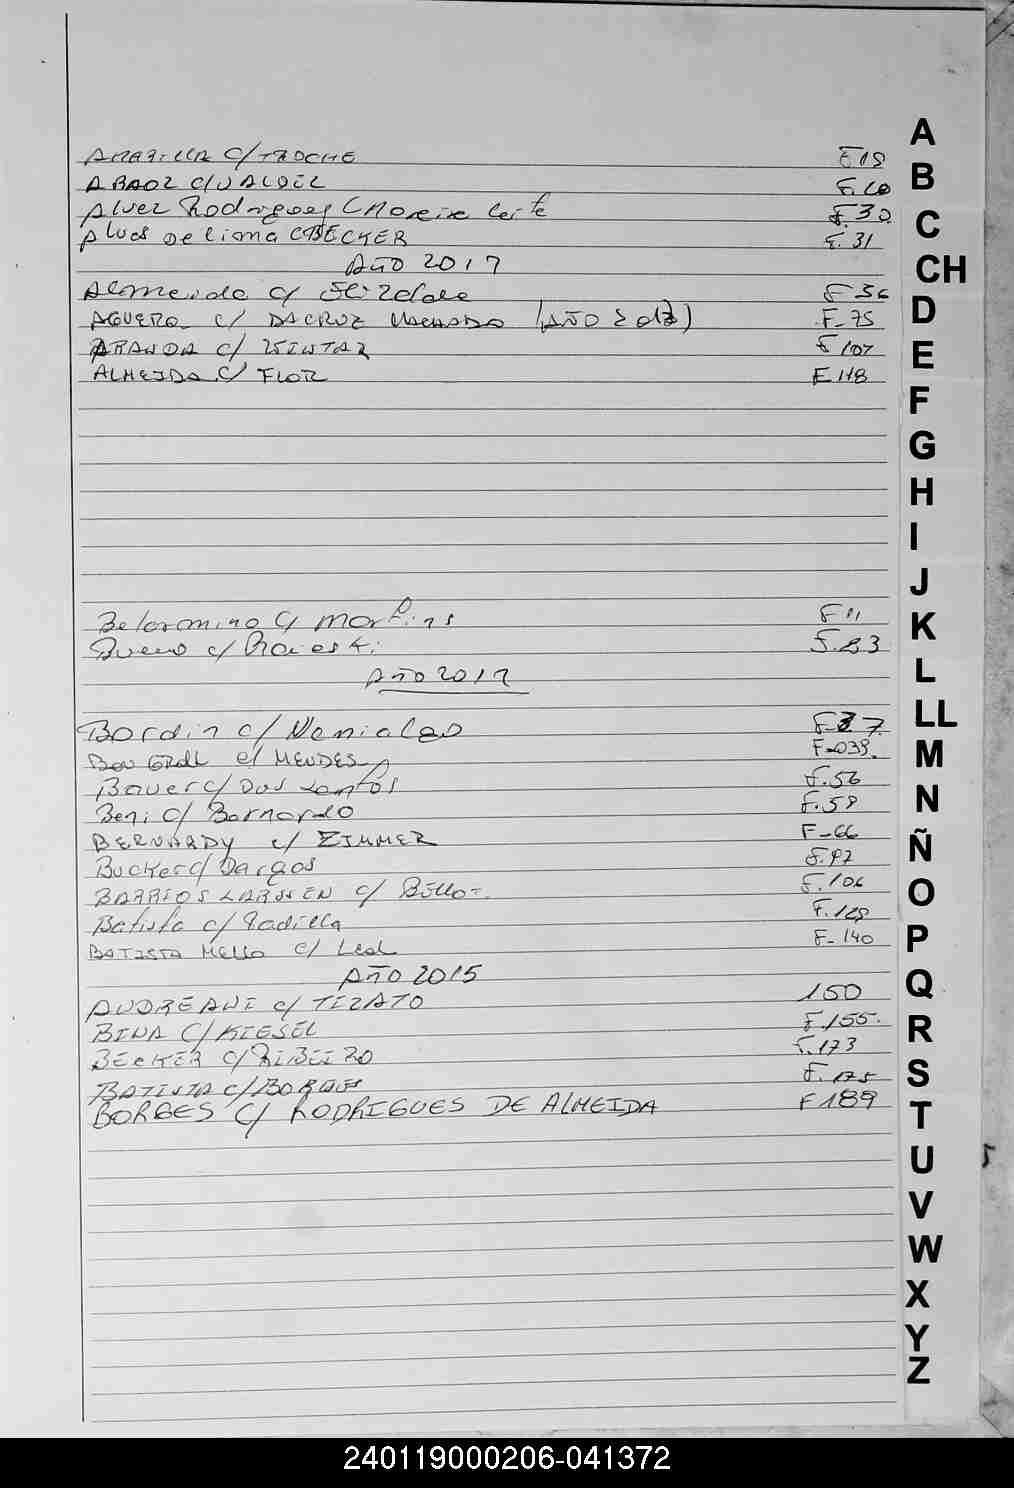 AMARILLA C/TROCHE F 18
ABAOZ C/VALDEZ F.20
Alvez Rodrigues C Moreira Leite F.30
Alves De Lima C BECKER F. 31
AÑO 2017
Almeida c/ F 36
AGUERO c/ DACRUZ MACHADO (AÑO 2017) F-75
ARANDA c/ F 107
ALMEIDA C/ FLOR F 118
Belarmino C/ Martins F 11
Bueno c/ F.23
AÑO 2017
Bordin c/ F 37
c/ MENDES F-038.
Bauer c/ Dos Santos F.56
Beni c/ Bernardo F.58
BERNARDY c/ ZIMMER F-66
Bucker c/ Vargas F.92
BARRIOS LARSSEN c/ Bello F.106
Batista c/ Padilla F.128
BATISTA Mello c/ Leal F-140
AÑO 2015
ANDREANI c/ TIZATO 150
BINA C/KIESEL F.155.
BECKER C/RIBEIRO F.173
BATISTA c/BORGES F.175
BORGES C/ RODRIGUES DE ALMEIDA F 189
A
B
C
CH
D
E
F
G
H
I
J
K
L
LL
M
N
Ñ
O
P
Q
R
S
T
U
V
W
X
Y
Z
240119000206-041372